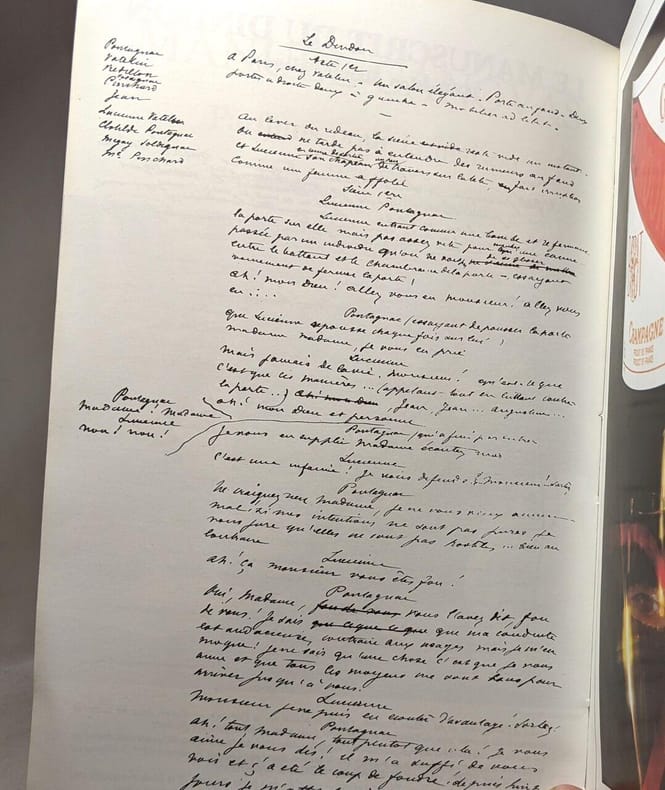 Le Dindon
Acte 1er
Pontagnac
Vatelin
Redillon
Pinchard
Jean
Lucienne Vatelin
Clotilde Pontagnac
Megay Soldignac
Me Pinchard
A Paris, chez Vatelin – Un salon élégant. Porte au fond. Deux
portes à droite deux à gauche – Mobilier ad libitum –
Au lever du rideau, la scène reste vide un instant.
On ne tarde pas à entendre des rumeurs au fond
et Lucienne son chapeau de travers sur la tête, fait irruption
comme une femme affolée
Scène 1ere
Lucienne Pontagnac
Lucienne entrant comme une bombe et refermant
la porte sur elle mais pas assez vite pour qu'une canne
passée par un individu qu'on ne voit
entre le battant et le chambranle de la porte – essayant
vainement de fermer la porte!
Ah! mon Dieu! allez vous en monsieur! allez vous
en....
Pontagnac (essayant de pousser la porte
que Lucienne repousse chaque fois sur lui)
madame madame, je vous en prie
Lucienne
Mais jamais de la vie, monsieur! qu'est-ce que
c'est que ces manières... (appelant tout en luttant contre
la porte..) Jean, Jean... Augustine...
ah! mon Dieu et personne
Pontagnac
Madame! Madame
Lucienne
non! non!
Pontagnac (qui a fini par entrer
Je vous en supplie madame écoutez moi
Lucienne
C'est une infamie! Je vous defends Monsieur! Sortez
Pontagnac
Ne craignez rien madame, je ne vous veux aucun
mal! Si mes intentions ne sont pas pures, je
vous jure qu'elles ne sont pas hostiles... bien au
contraire
Lucienne
Ah! ça monsieur vous êtes fou!
Pontagnac
Oui, Madame, fou de vous vous l'avez dit, fou
de vous! Je sais que ma conduite
est audacieuse, contraire aux usages mais je m'en
moque! je ne sais qu'une chose c'est que je vous
aime et que tous les moyens me sont bons pour
arriver jusqu'à vous.
Lucienne
Monsieur je ne puis en écouter d'avantage! Sortez!
Pontagnac
Ah! tout madame, tout plutot que cela! Je vous
aime je vous dis! il m'a suffi de vous
voir et ç'a été le coup de foudre! depuis huit
jours je
CHAMPAGNE